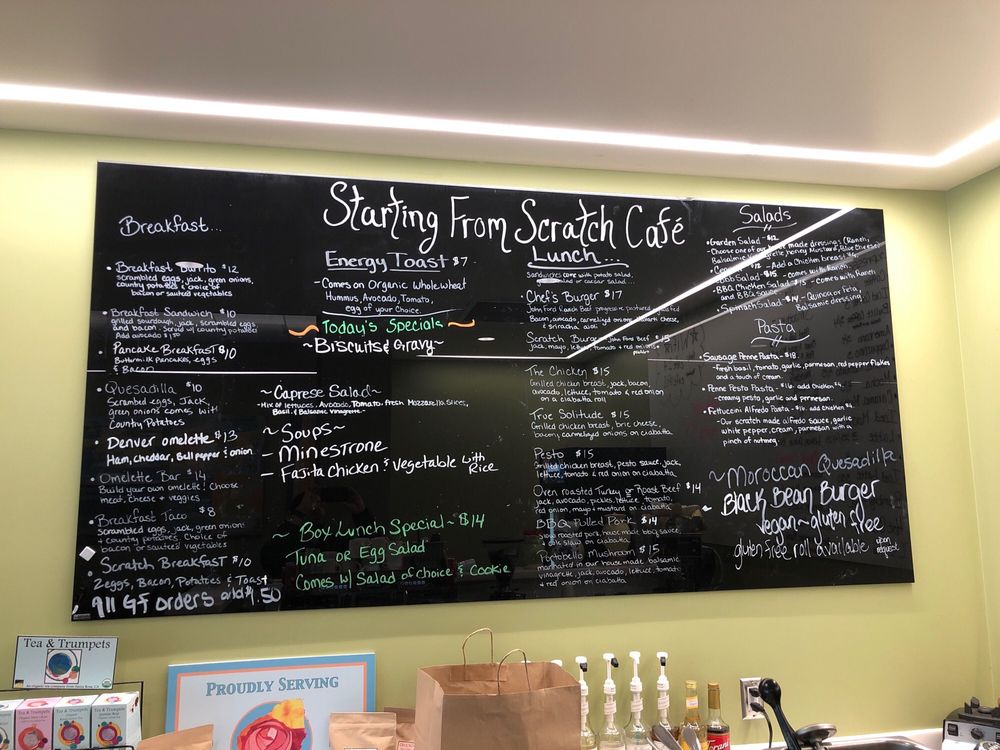 Starting From Scratch Café
Breakfast...
• Breakfast Burrito $12
scrambled eggs, jack, green onions,
country potatoes & choice of
bacon or sauteed vegetables
• Breakfast Sandwich $10
grilled sourdough, jack, scrambled eggs
and bacon. Served w/ country potatoes
Add avocado $1.50
• Pancake Breakfast $10
Buttermilk Pancakes, eggs
& Bacon
• Quesadilla $10
Scrambled eggs, Jack,
green onions comes with
Country Potatoes
• Denver omelette $13
Ham, cheddar, Bell pepper & onion
• Omelette Bar $14
Build your own omelette! Choose
meat, cheese + veggies
• Breakfast Taco $8
Scrambled eggs, jack, green onions
+ country potatoes. Choice of
bacon or sauteed vegetables
• Scratch Breakfast $10
2eggs, Bacon, Potatoes & Toast
All GF orders add $1.50
Energy Toast $7
~Comes on Organic wholewheat
Hummus, Avocado, Tomato,
egg of your Choice
~Today's Specials~
~Biscuits & Gravy~
~Caprese Salad~
~Mix of lettuces, Avocado, Tomato, fresh Mozzarella Slices,
Basil, & Balsamic vinegrette~
~Soups~
~ Minestrone
~ Fajita Chicken & Vegetable with Rice
~ Box Lunch Special~ $14
Tuna or Egg Salad
Comes w/ Salad of choice & Cookie
Lunch...
Sandwiches come with potato salad,
salad or caesar salad
Chef's Burger $17
John Ford Ranch Beef
Bacon, avocado, carmelized onions, cheese,
& sriracha aioli
Scratch Burger John Ford Beef $15
jack, mayo, lettuce, tomato + red onions
The Chicken $15
Grilled chicken breast, jack, bacon,
avocado, lettuce, tomato + red onion
on a ciabatta roll
True Solitude $15
Grilled chicken breast, brie cheese,
bacon, carmelized onions on ciabatta
Pesto $15
Grilled chicken breast, pesto sauce, jack,
lettuce, tomato & red onion on ciabatta
Oven roasted Turkey or Roast Beef $14
jack, avocado, pickles, lettuce, tomato,
red onion, mayo + mustard on ciabatta
BBQ Pulled Pork $14
slow roasted pork, house made bbq sauce,
+ slaw on ciabatta
Portobello Mushroom $15
marinated in our house made balsamic
vinaigrette, jack, avocado, lettuce, tomato
+ red onion on ciabatta
Salads
• Garden Salad - $12
- Choose one of our house made dressings (Ranch,
Balsamic Vinaigrette, Honey Mustard, Blue Cheese)
$12 - Add a Chicken breast
• Cobb Salad $15 - comes with Ranch
• BBQ Chicken Salad $15 - comes with Ranch
and BBQ sauce
• Spinach Salad - $14 - Quinoa or Feta,
Balsamic dressing
Pasta
• Sausage Penne Pasta - $18
- fresh basil, tomato, garlic, parmesan, red pepper flakes
and a touch of cream
• Penne Pesto Pasta - $16 add chicken $4
- creamy pesto, garlic and parmesan
• Fettucini Alfredo Pasta - $16 add chicken $4
- Our scratch made alfredo sauce, garlic
white pepper, cream, parmesan with a
pinch of nutmeg
~Moroccan Quesadilla
~ Black Bean Burger
Vegan~gluten free
gluten free roll available upon request
Tea & Trumpets
PROUDLY SERVING
Tea & Trumpets